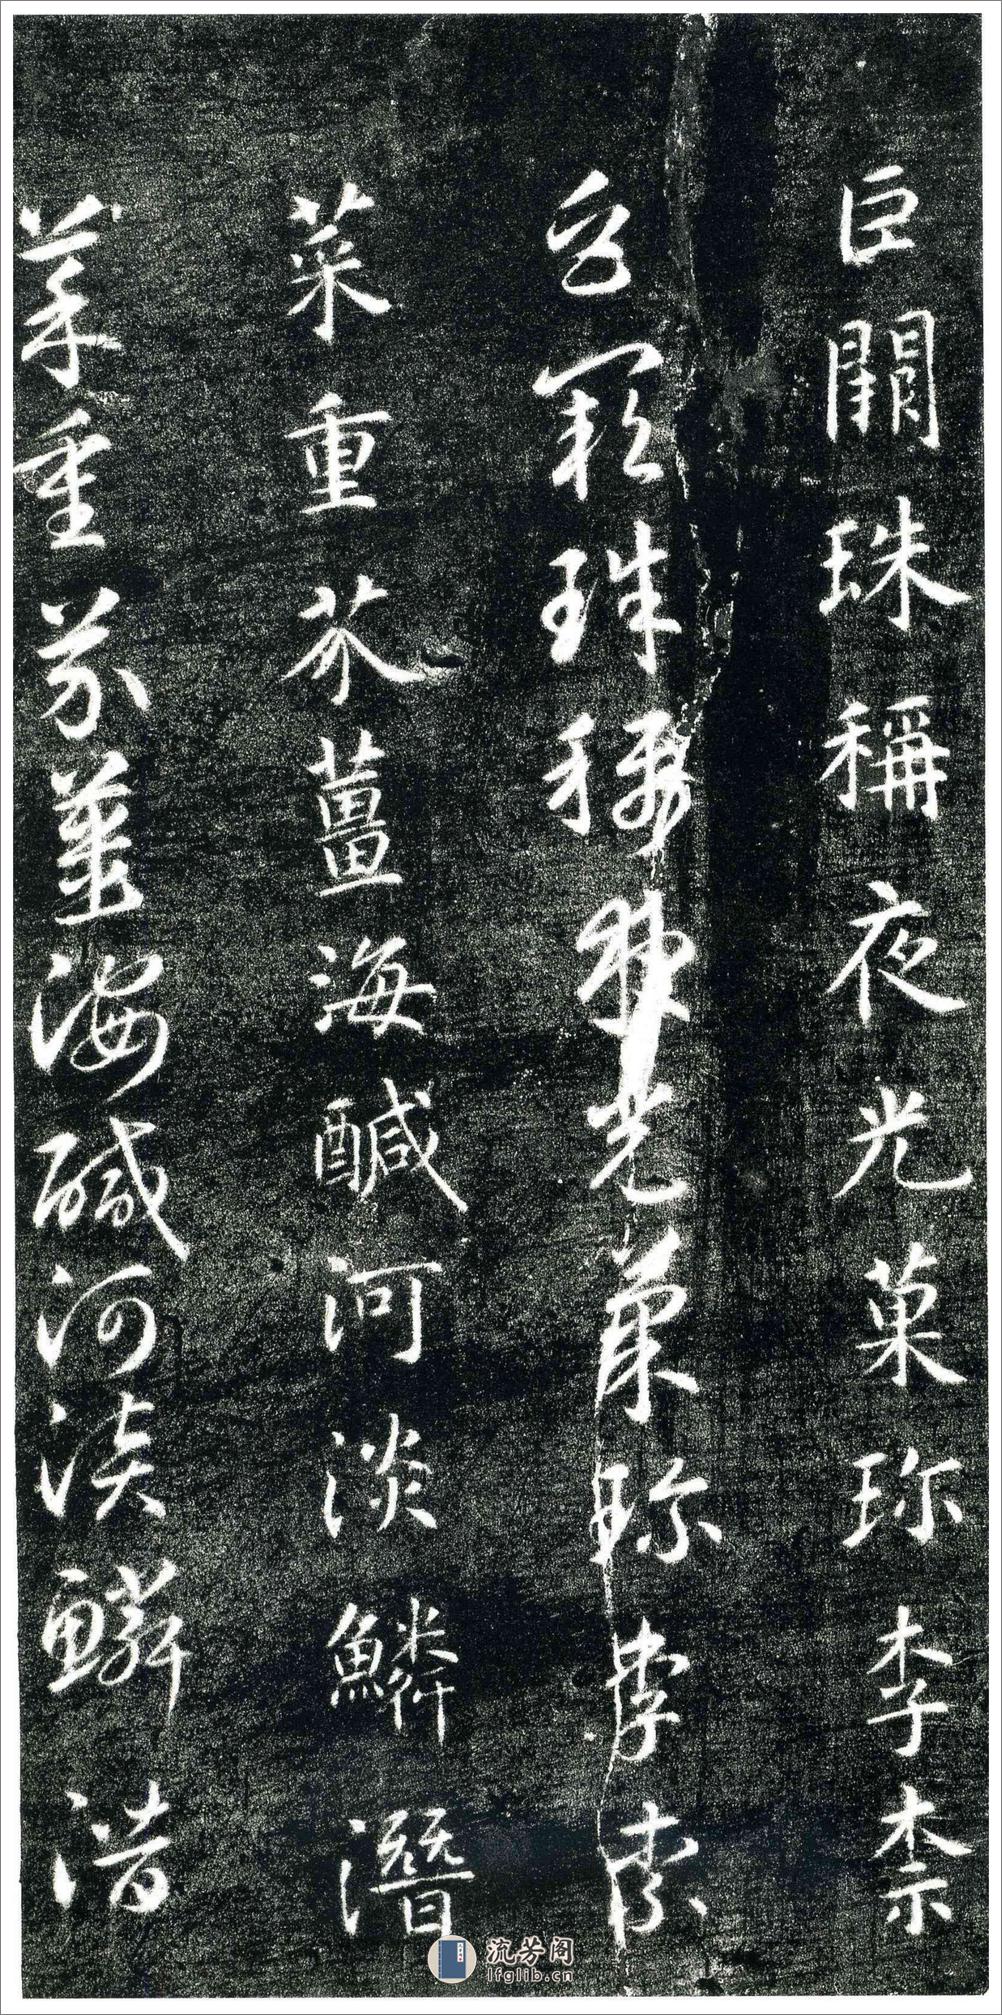 巨闕珠稱夜光菓珎李柰
巨闕珠稱夜光菓珎李柰
菜重芥薑海醎河淡鱗潛
菜重芥薑海醎河淡鱗潛
流芳阁
lfglib.cn